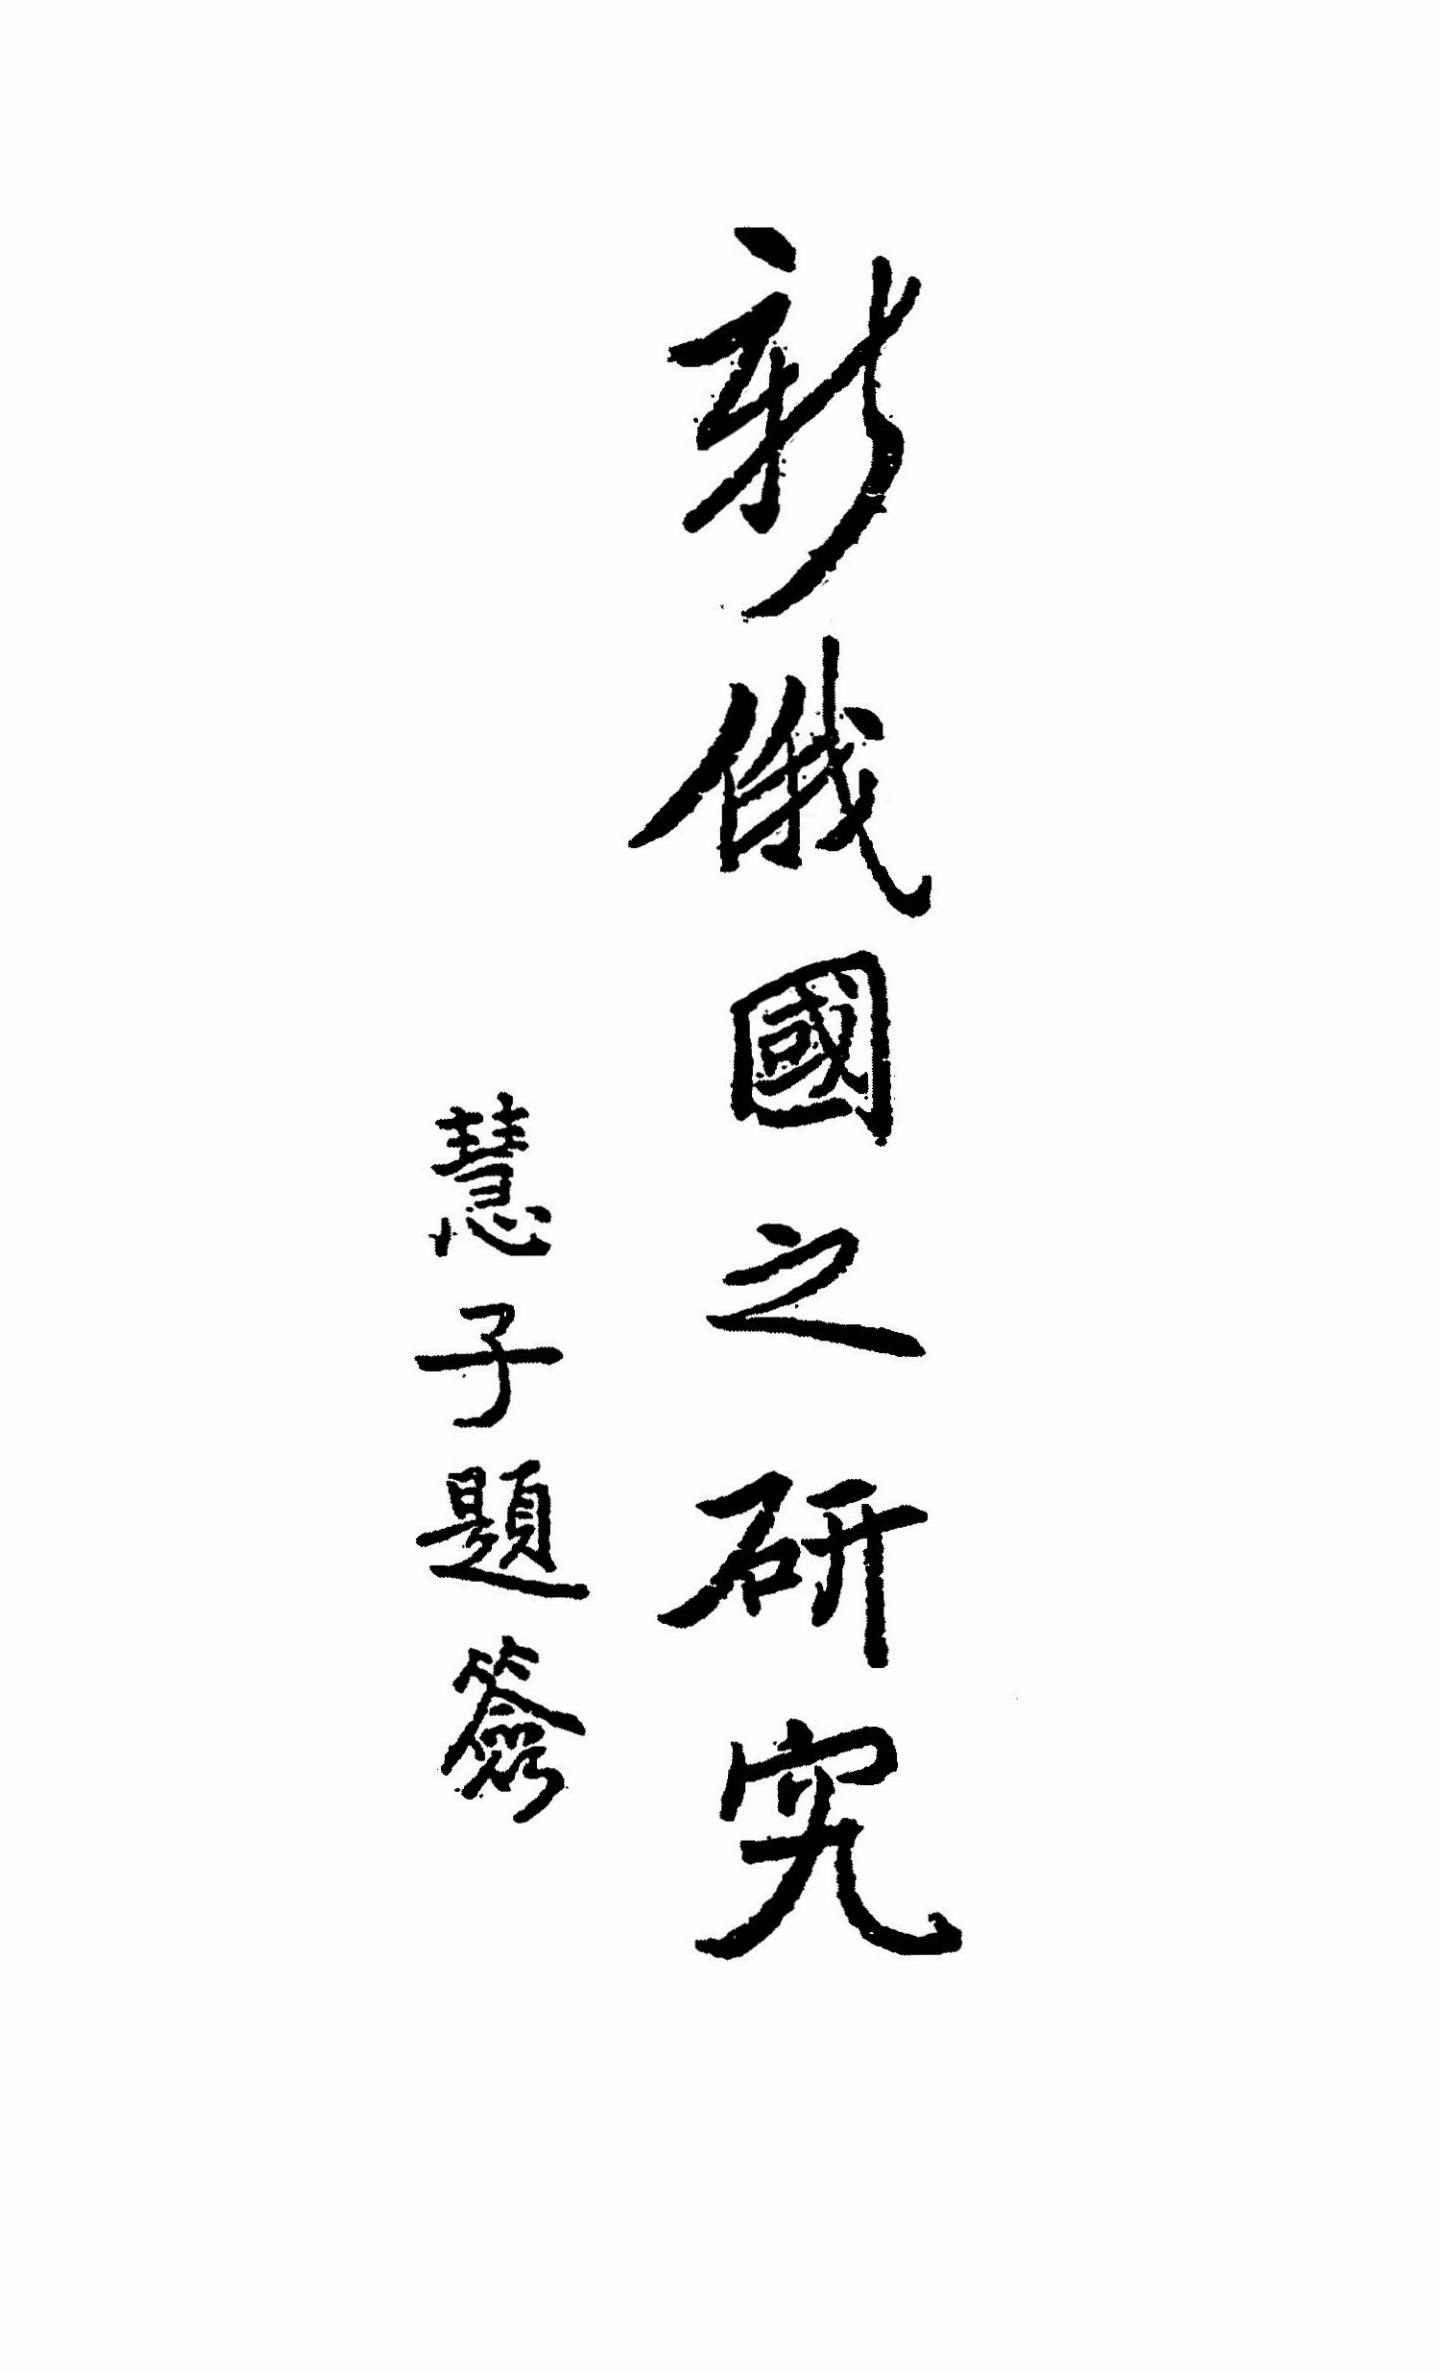 新俄國之研究
慧子題簽